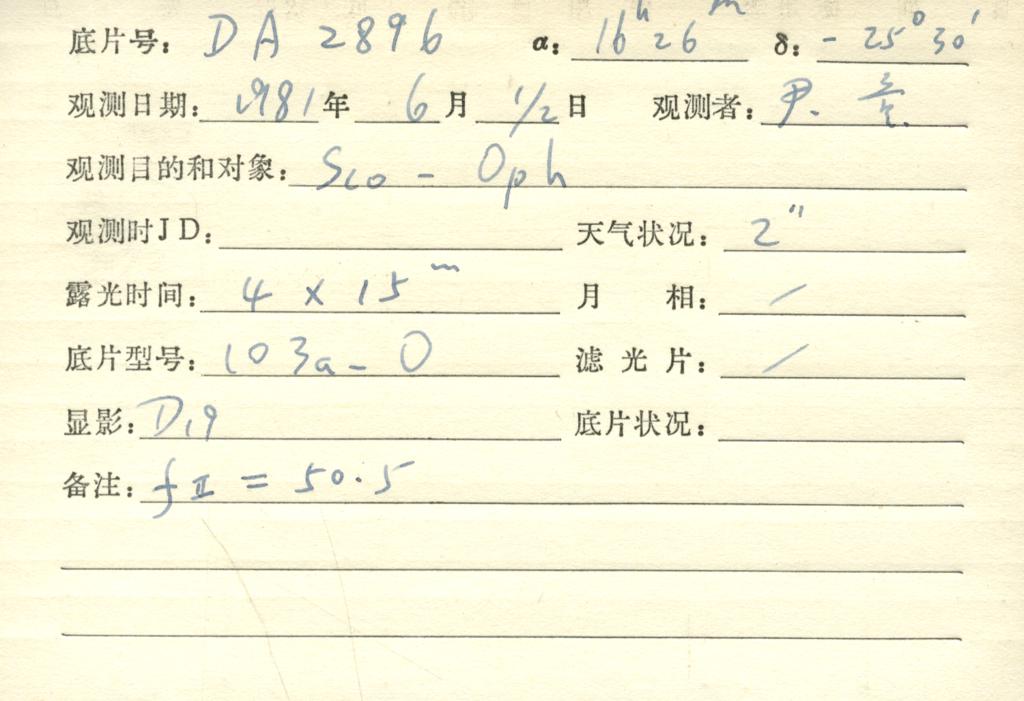 底片号: DA 2896 α: 16h 26m δ: -25° 30′
观测日期: 1981年 6月 1/2日 观测者: 尹.
观测目的和对象: Sco - Oph
观测时JD: 天气状况: 2″
露光时间: 4 × 15m 月 相: /
底片型号: 103a-O 滤光片: /
显影: D19 底片状况:
备注: fII = 50.5